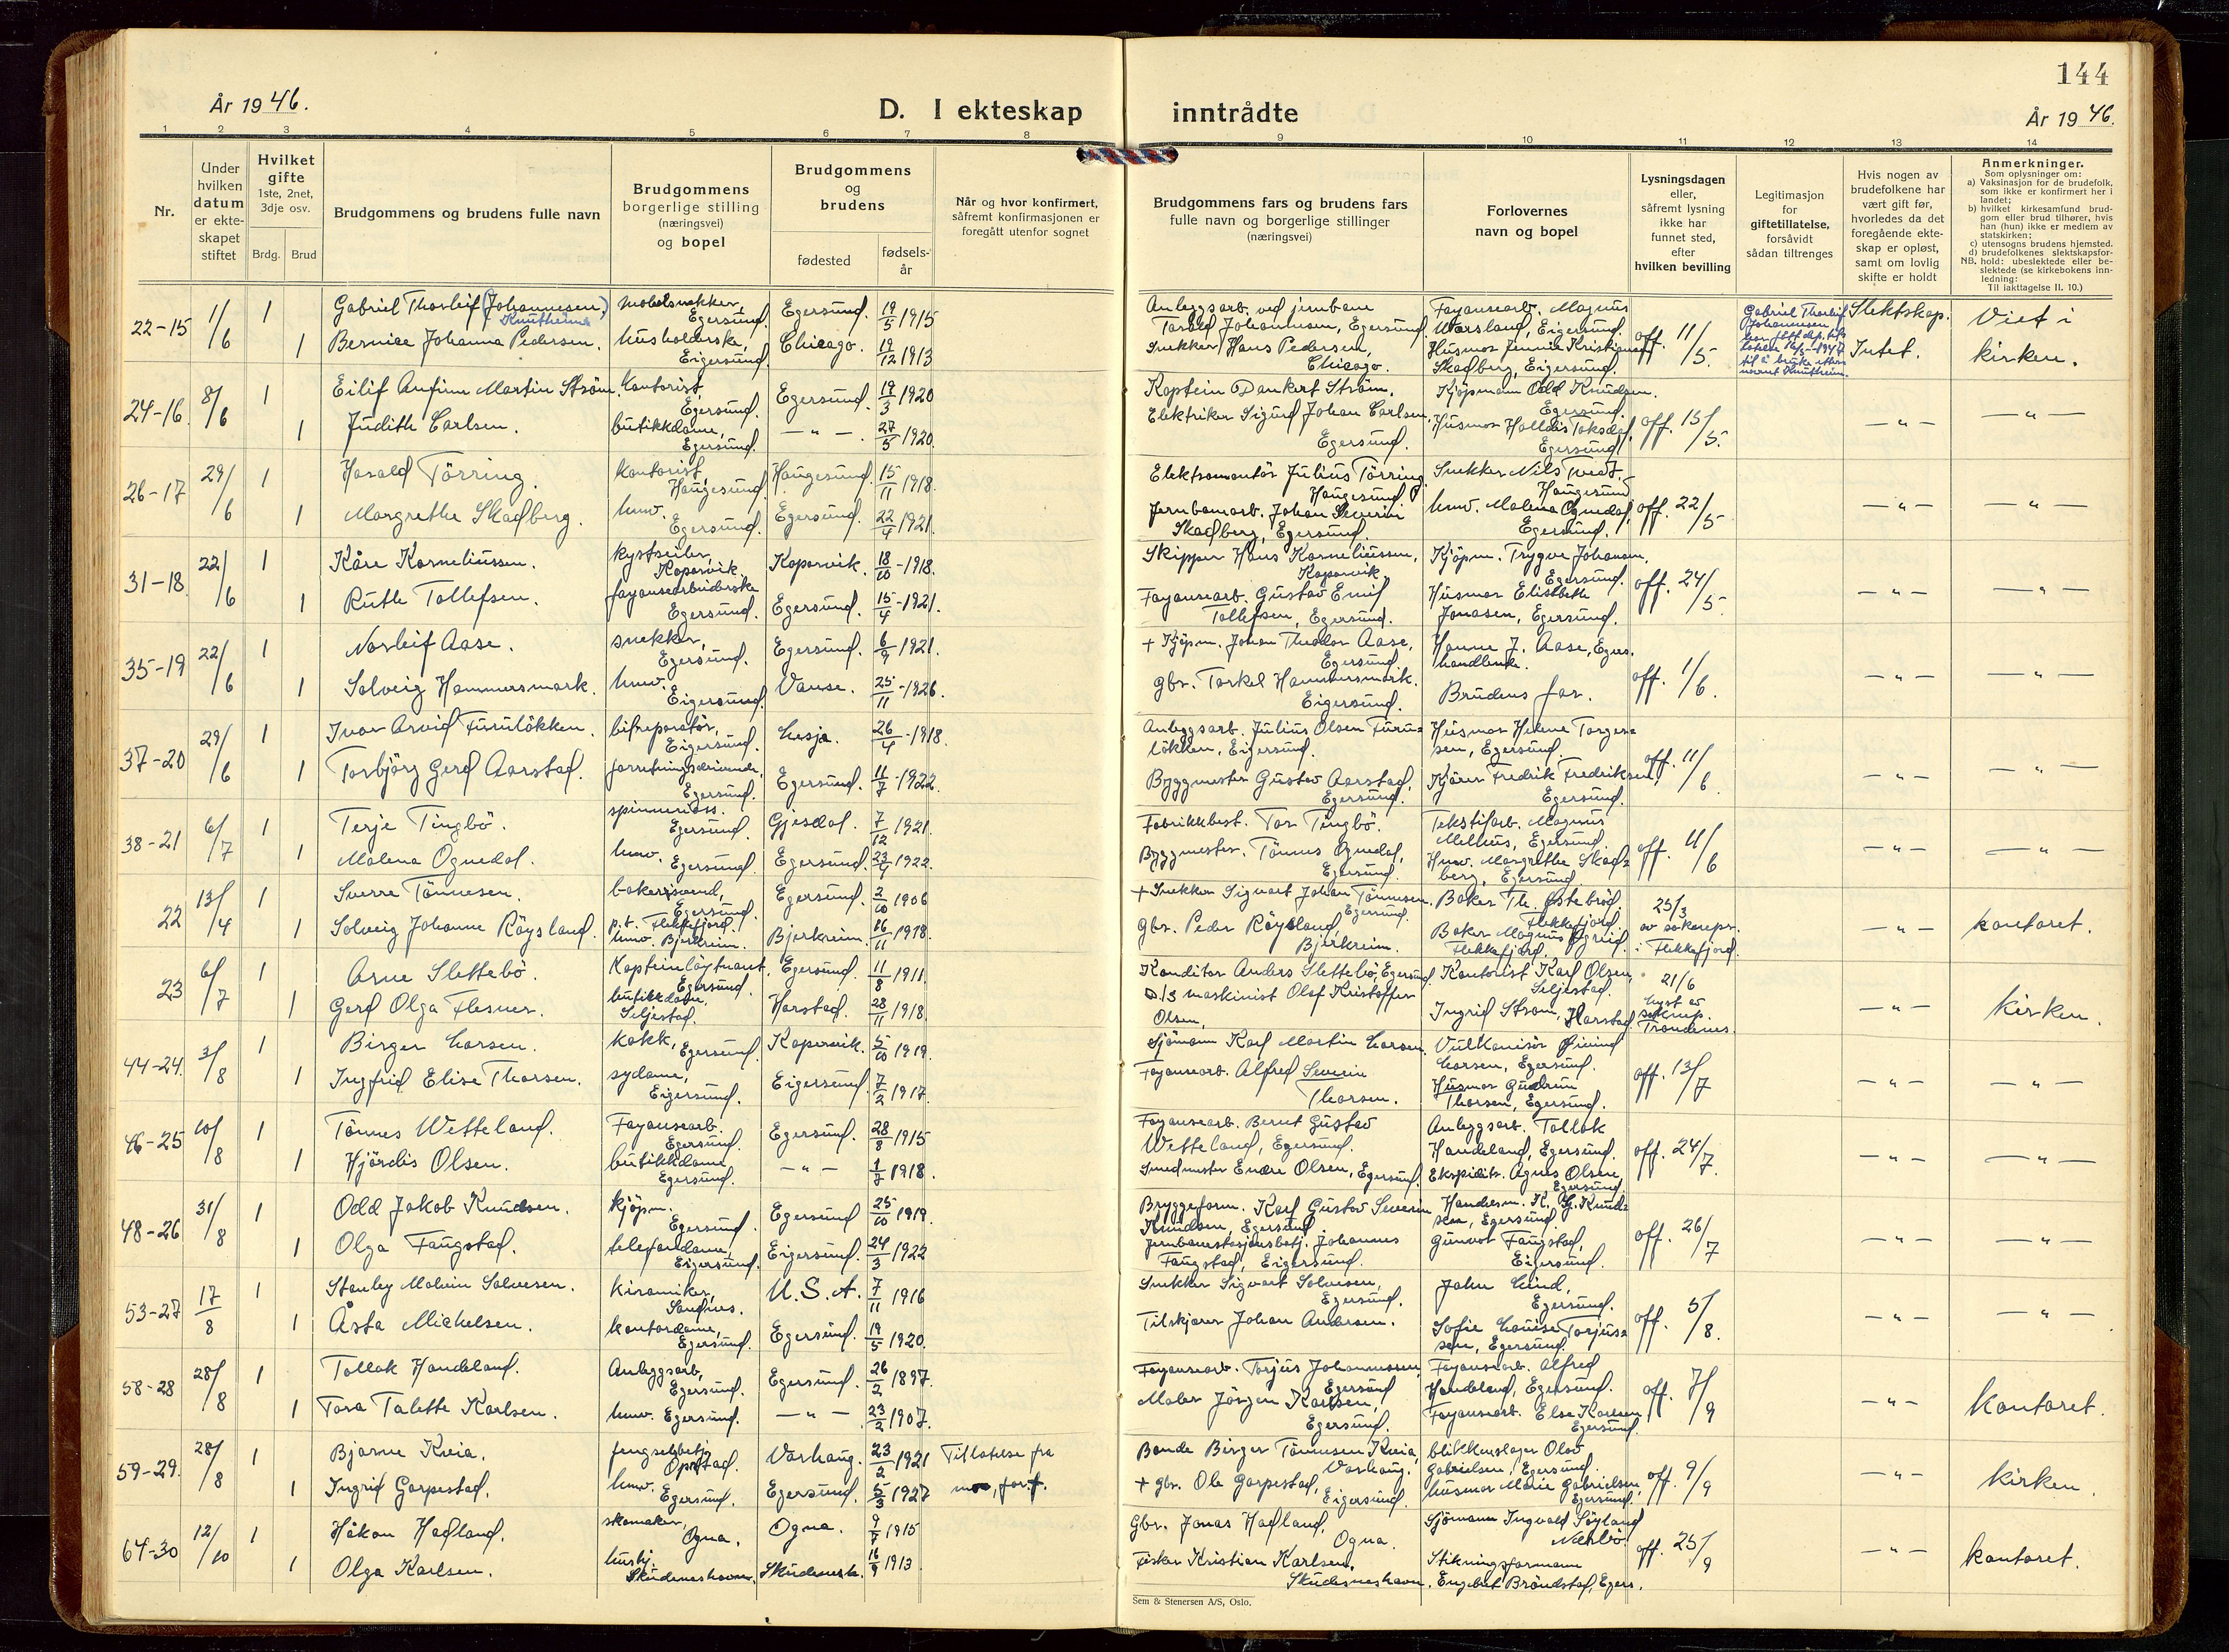 144
År 1946.
D. I ekteskap inntrådte
År 1946.
1 2 3 4 5 6 7 8 9 10 11 12 13 14
Nr.
Under hvilken datum er ekteskapet stiftet
Hvilket gifte 1ste, 2net, 3dje osv.
Brdg. Brud
Brudgommens og brudens fulle navn
Brudgommens borgerlige stilling (næringsvei) og bopel
Brudgommens og brudens
fødested
fødselsår
Når og hvor konfirmert, såfremt konfirmasjonen er foregått utenfor sognet
Brudgommens fars og brudens fars fulle navn og borgerlige stillinger (næringsvei)
Forlovernes navn og bopel
Lysningsdagen eller, såfremt lysning ikke har funnet sted, efter hvilken bevilling
Legitimasjon for giftetillatelse, forsåvidt sådan tiltrenges
Hvis nogen av brudefolkene har vært gift før, hvorledes da det foregående ekteskap er opløst, samt om lovlig skifte er holdt
Anmerkninger.
Som oplysninger om:
a) Vaksinasjon for de brudefolk, som ikke er konfirmert her i landet;
b) hvilket kirkesamfund brudgom eller brud tilhører, hvis han (hun) ikke er medlem av statskirken;
c) utensogns brudens hjemsted.
d) brudefolkenes slektskapsforhold: ubeslektede eller beslektede (se kirkebokens innledning:
NB. Til iakttagelse II. 10.)
22-15 1/6 1 Gabriel Thorleif (Johannesen) Knutheim møbelsnekker, Egersund. Egersund. 19/5 1915 Anleggsarb. ved jernbane Torald Johannesen, Egersund. Fayansearb. Magnus Uarsland, Eigersund. off. 11/5. Gabriel Thorleif Johannesen Slektskap. Viet i
1 Bernice Johanna Pedersen. husholderske, Eigersund. Chicago. 19/12 1913 Snekker Hans Pedersen, Chicago. Husmor Jennie Kristiansen Skadberg, Eigersund. Intet. kirken.
24-16. 8/6 1 Eilif Anfinn Martin Strøm. kontorist, Egersund. Egersund. 19/3 1920 Kaptein Dankert Strøm. Kjøpmann Odd Knudsen. Egersund. off. 15/5. —"— —"—
1 Judith Carlsen. butikkdame, Egersund. —"—. 27/5 1920. Elektriker Sigurd Johan Carlsen, Egersund. Husmor Halldis Toksdal, Egersund
26-17 29/6 1 Harald Törring. kontorist, Haugesund. Haugesund. 15/11 1918. Elektromontør Julius Törring, Haugesund. Snekker Nils Tvedt. Haugesund off. 22/5 —"— —"—
1 Margrethe Skadberg. husv. Egersund. Egersund. 22/4 1921. Jernbanearb. Johan Severin Skadberg, Egersund. husv. Malena Ognedal, Egersund.
31-18 22/6 1 Kåre Korneliussen. kystseiler, Kopervik. Kopervik. 18/10-1918. Skipper Hans Korneliussen, Kopervik. Kjøpm. Trygve Johansen, Egersund. off. 24/5. —"— —"—
1 Ruth Tollefsen. fayansearbeiderske Egersund. Egersund. 15/4-1921. Fayansearb. Gustav Emil Tollefsen, Egersund. Husmor Elisabeth Jonasen, Egersund.
35-19 22/6 1 Norleif Aase. snekker, Egersund. Egersund. 6/9 1921. + Kjøpm. Johan Theodor Aase, Egersund. Hanne J. Aase, Egers. handlende. off. 1/6. —"— —"—
1 Solveig Hammersmark. husv. Eigersund. Vanse. 25/11-1926. gbr. Torkel Hammersmark. Eigersund. Brudens far.
37-20 29/6 1 Ivar Arvid Furuløkken. bilreparatør, Eigersund. Lesja. 26/4-1918. Anleggsarb. Julius Olsen Furuløkken, Eigersund. Husmor Helene Torgersen, Egersund, off. 11/6 —"— —"—
1 Torbjörg Gerd Aarstad. forretningsdrivende, Egersund. Egersund. 11/7-1922. Byggmester Gustav Aarstad, Egersund. Kjører Fredrik Fredriksen, Egersund.
38-21 6/7 1 Terje Tingbø. spinneriass. Egersund. Gjesdal. 7/12 1921. Fabrikkbest. Tor Tingbø. Tekstilarb. Magnus Melhus, Egersund. off. 11/6 —"— —"—
1 Malena Ognedal. husv. Egersund. Egersund. 23/4 1922. Byggmester. Tønnes Ognedal, Egersund. Husv. Margrethe Skadberg, Egersund
22 13/4 1 Sverre Tønnesen. bakersvend, Egersund. p.t. Flekkefjord. Egersund. 2/10 1906 + Snekker Sigvart Johan Tønnesen. Egersund. Baker Th. Østebrød. Flekkefjord. 25/3 av sokneprs. i Flekkefjord. —"— kontoret.
1 Solveig Johanne Röysland. husv. Bjerkreim. Bjerkreim. 16/11 1918. Gbr. Peder Röysland, Bjerkreim. Baker Magnus Egreid, Flekkefjord.
23 6/7 1 Arne Slettebø. Kapteinløytnant, Egersund. Egersund. 11/8 1911. Konditor Anders Slettebø, Egersund. Kontorist Karl Olsen, Seljestad. 21/6 lyst av soknep. Trondenes. —"— kirken.
1 Gerd Olga Flesner. butikkdame, Seljestad. Harstad. 28/11 1918. D/S maskinist Olaf Kristoffer Olsen, Ingrid Strøm, Harstad
44-24. 3/8 1 Birger Larsen. kokk, Egersund. Kopervik. 5/10 1919. Sjømann Karl Martin Larsen. Vulkanisør Øivind Larsen, Egersund. off. 13/7 —"— —"—
1 Ingfrid Elise Thorsen. sydame, Eigersund. Eigersund. 7/2 1917. Fayansearb. Alfred Severin Thorsen. Husmor Gudrun Thorsen, Egersund.
46-25 10/8 1 Tønnes Wetteland. Fayansearb. Egersund. Egersund. 28/8 1915 Fayansearb. Bernt Gustav Wetteland, Egersund. Anleggsarb. Tollak Handeland, Egersund. off. 24/7. —"— —"—
1 Hjørdis Olsen. butikkdame Egersund. —"— 1/7 1918. Smedmester Endre Olsen, Egersund. Ekspeditr. Agnes Olsen, Egersund
48-26 31/8 1 Odd Jakob Knudsen. kjøpm. Egersund. Egersund 25/10 1919. Bryggeform. Karl Gustav Severin Knudsen, Egersund. Handelsm. K. G. Knudsen, Egersund. off. 26/7 —"— —"—
1 Olga Faugstad. telefondame, Eigersund. Eigersund. 24/3 1922 Jernbanestasjonsbetj. Johannes Faugstad, Eigersund. Gunvor Faugstad, Eigersund.
53-27 17/8 1 Stanley Malvin Salvesen. keramiker, Sandnes. U.S.A. 7/11 1916 Snekker Sigvart Salvesen, Egersund. John Lind, Egersund. off. 5/8. —"— —"—
1 Åsta Mickelsen. kontordame, Egersund. Egersund. 19/5 1920. Tilskjærer Johan Andersen. Sofie Louise Torjussen, Egersund.
58-28 28/8 1 Tollak Handeland. Anleggsarb, Egersund. Egersund. 26/2 1897. Fayansearb. Torjus Johannessen, Egersund Fayansearb. Alfred Handeland, Egersund. off. 7/9 —"— kontoret.
1 Tora Talette Karlsen. husv. Egersund. —"— 23/2 1907. Maler Jørgen Karlsen, Egersund. Fayansearb. Else Karlsen Egersund.
59-29. 28/8 1 Bjarne Kvia. fengselsbetj. Opstad. Varhaug. 23/2 1921 Tillatelse fra Bonde Birger Tønnesen Kvia, Varhaug. blikkenslager Olav Gabrielsen, Egersund. off. 9/9 —"— kirken.
1 Ingrid Gorpestad. husv. Egersund. Egersund. 5/3 1927 + gbr. Ole Gorpestad, Eigersund. husmor Marie Gabrielsen, Egersund.
64-30 12/10 1 Håkon Hadland. skomaker, Ogna. Ogna. 9/7 1915 Gbr. Jonas Hadland, Ogna. Sjømann Ingvald Søyland off. 25/9 —"— kontoret.
1 Olga Karlsen. hushj. Skudeneshavn. Skudenesh. 16/9 1913. Fisker Kristian Karlsen, Skudeneshavn. Stikningsformann Engebret Brøndstad, Egers.
Sem & Stenersen A/S, Oslo.